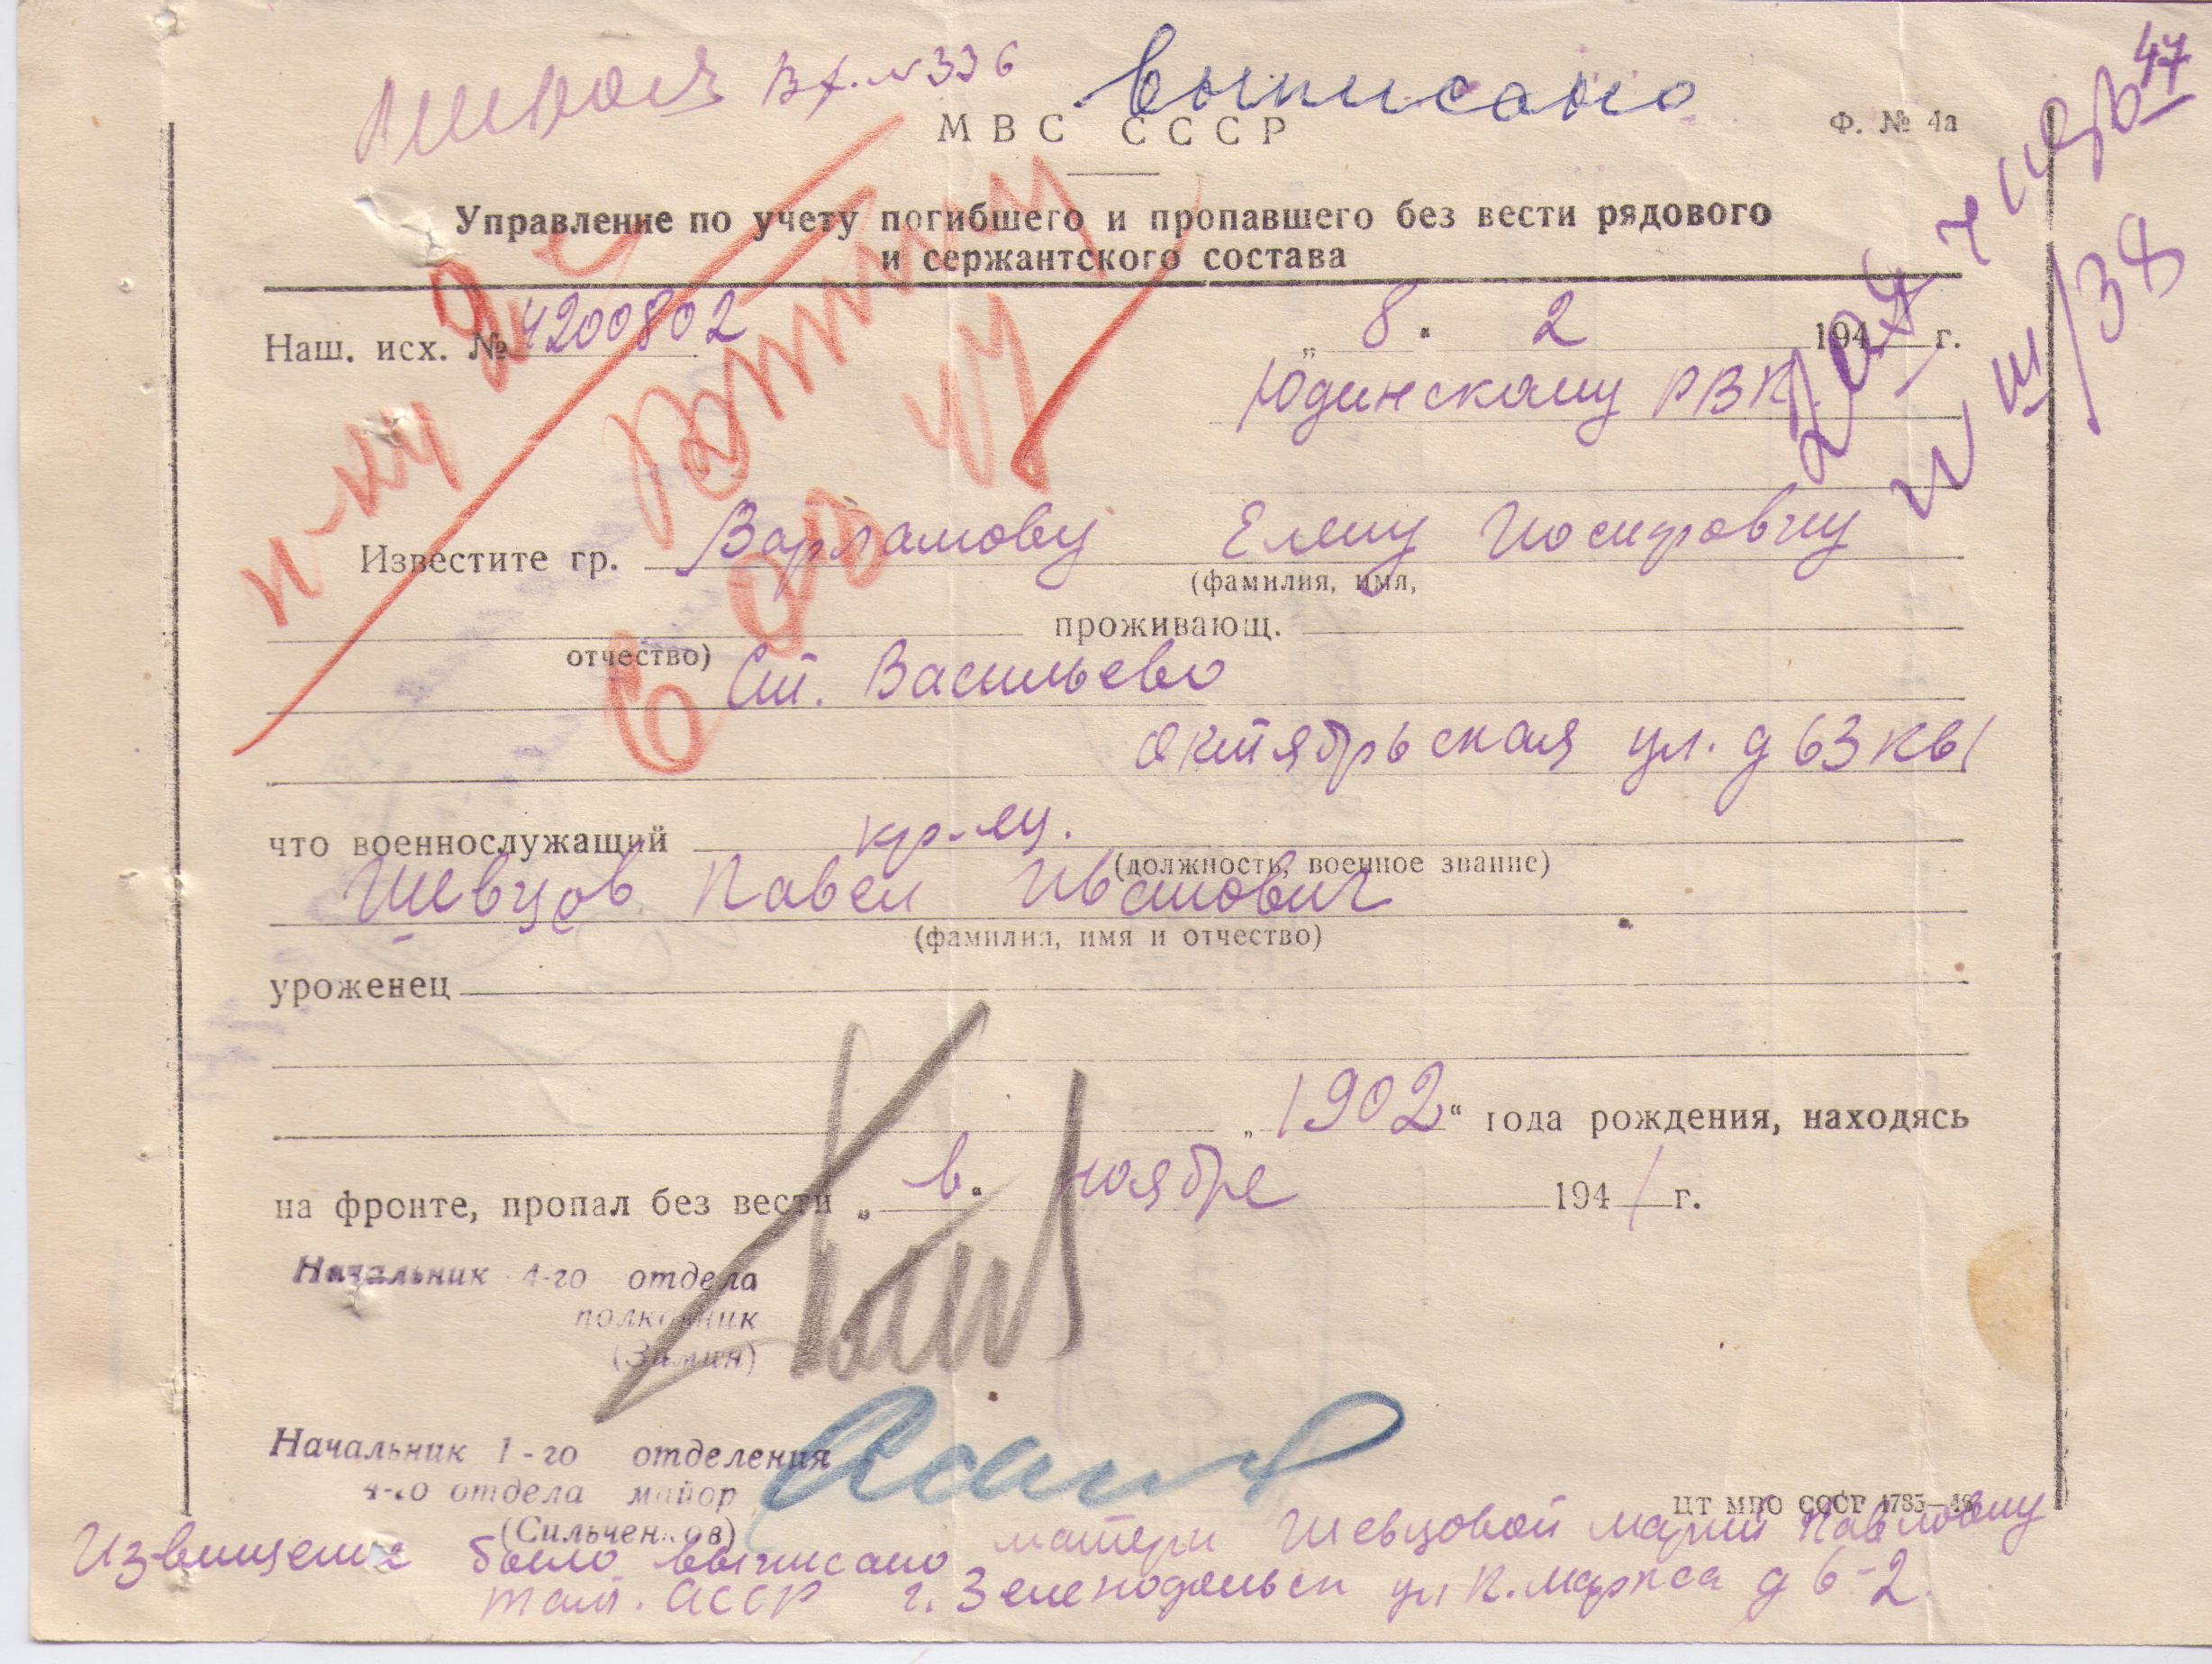 Вх. № 336 выписано
47
МВС СССР
Ф. № 4а
Управление по учету погибшего и пропавшего без вести рядового
и сержантского состава
Наш. исх. № 4200802 „ 8 “ 2 194 г.
Юдинскому РВК
III/38
Известите гр. Варламову Елену Иосифовну
(фамилия, имя,
проживающ.
отчество)
Ст. Васильево
Октябрьская ул. д 63 кв 1
что военнослужащий кр-ец.
(должность, военное звание)
Шевцов Павел Иванович
(фамилия, имя и отчество)
уроженец
„ 1902 “ года рождения, находясь
на фронте, пропал без вести „ в “ ноябре 1941 г.
Начальник 4-го отдела
полковник
(Зимин)
Начальник 1-го отделения
4-го отдела майор
(Сильченков)
ЦТ МПО СССР 4783—48
Извещение было выписано матери Шевцовой Марии Павловну
тат. АССР г. Зеленодольск ул К. Маркса д 6-2.